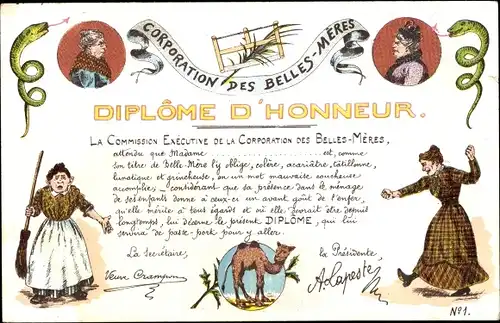 CORPORATION DES BELLES-MÈRES
DIPLÔME D'HONNEUR.
LA COMMISSION EXÉCUTIVE DE LA CORPORATION DES BELLES-MÈRES,
attendu que Madame .................... est, comme
son titre de Belle-Mère l'y oblige, colère, acariâtre, tatillonne,
lunatique et grincheuse, en un mot mauvaise coucheuse
accomplie; considérant que sa présence dans le ménage
de ses enfants donne à ceux-ci un avant goût de l'enfer,
qu'elle mérite à tous égards et où elle devrait être depuis
longtemps, lui décerne le présent DIPLÔME, qui lui
servira de passe-port pour y aller.
La Secrétaire,
Veuve Champion
la Présidente,
A. Lapeste
Nº 1.